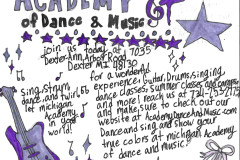 ACADEMY
of Dance & Music
join us today at 7035
Dexter-Ann Arbor Road
Dexter MI 48130
for a wonderful
experience. Guitar, Drums, singing,
dance classes, summer classes, and camps
and more! reach us at
and make sure to check out our
Website at AcademyDanceAndMusic.com
Dance and sing and show your
true colors at michigan Academy
of dance and music.
Sing, strum,
dance, and twirl
let michigan
Academy
in your
world!